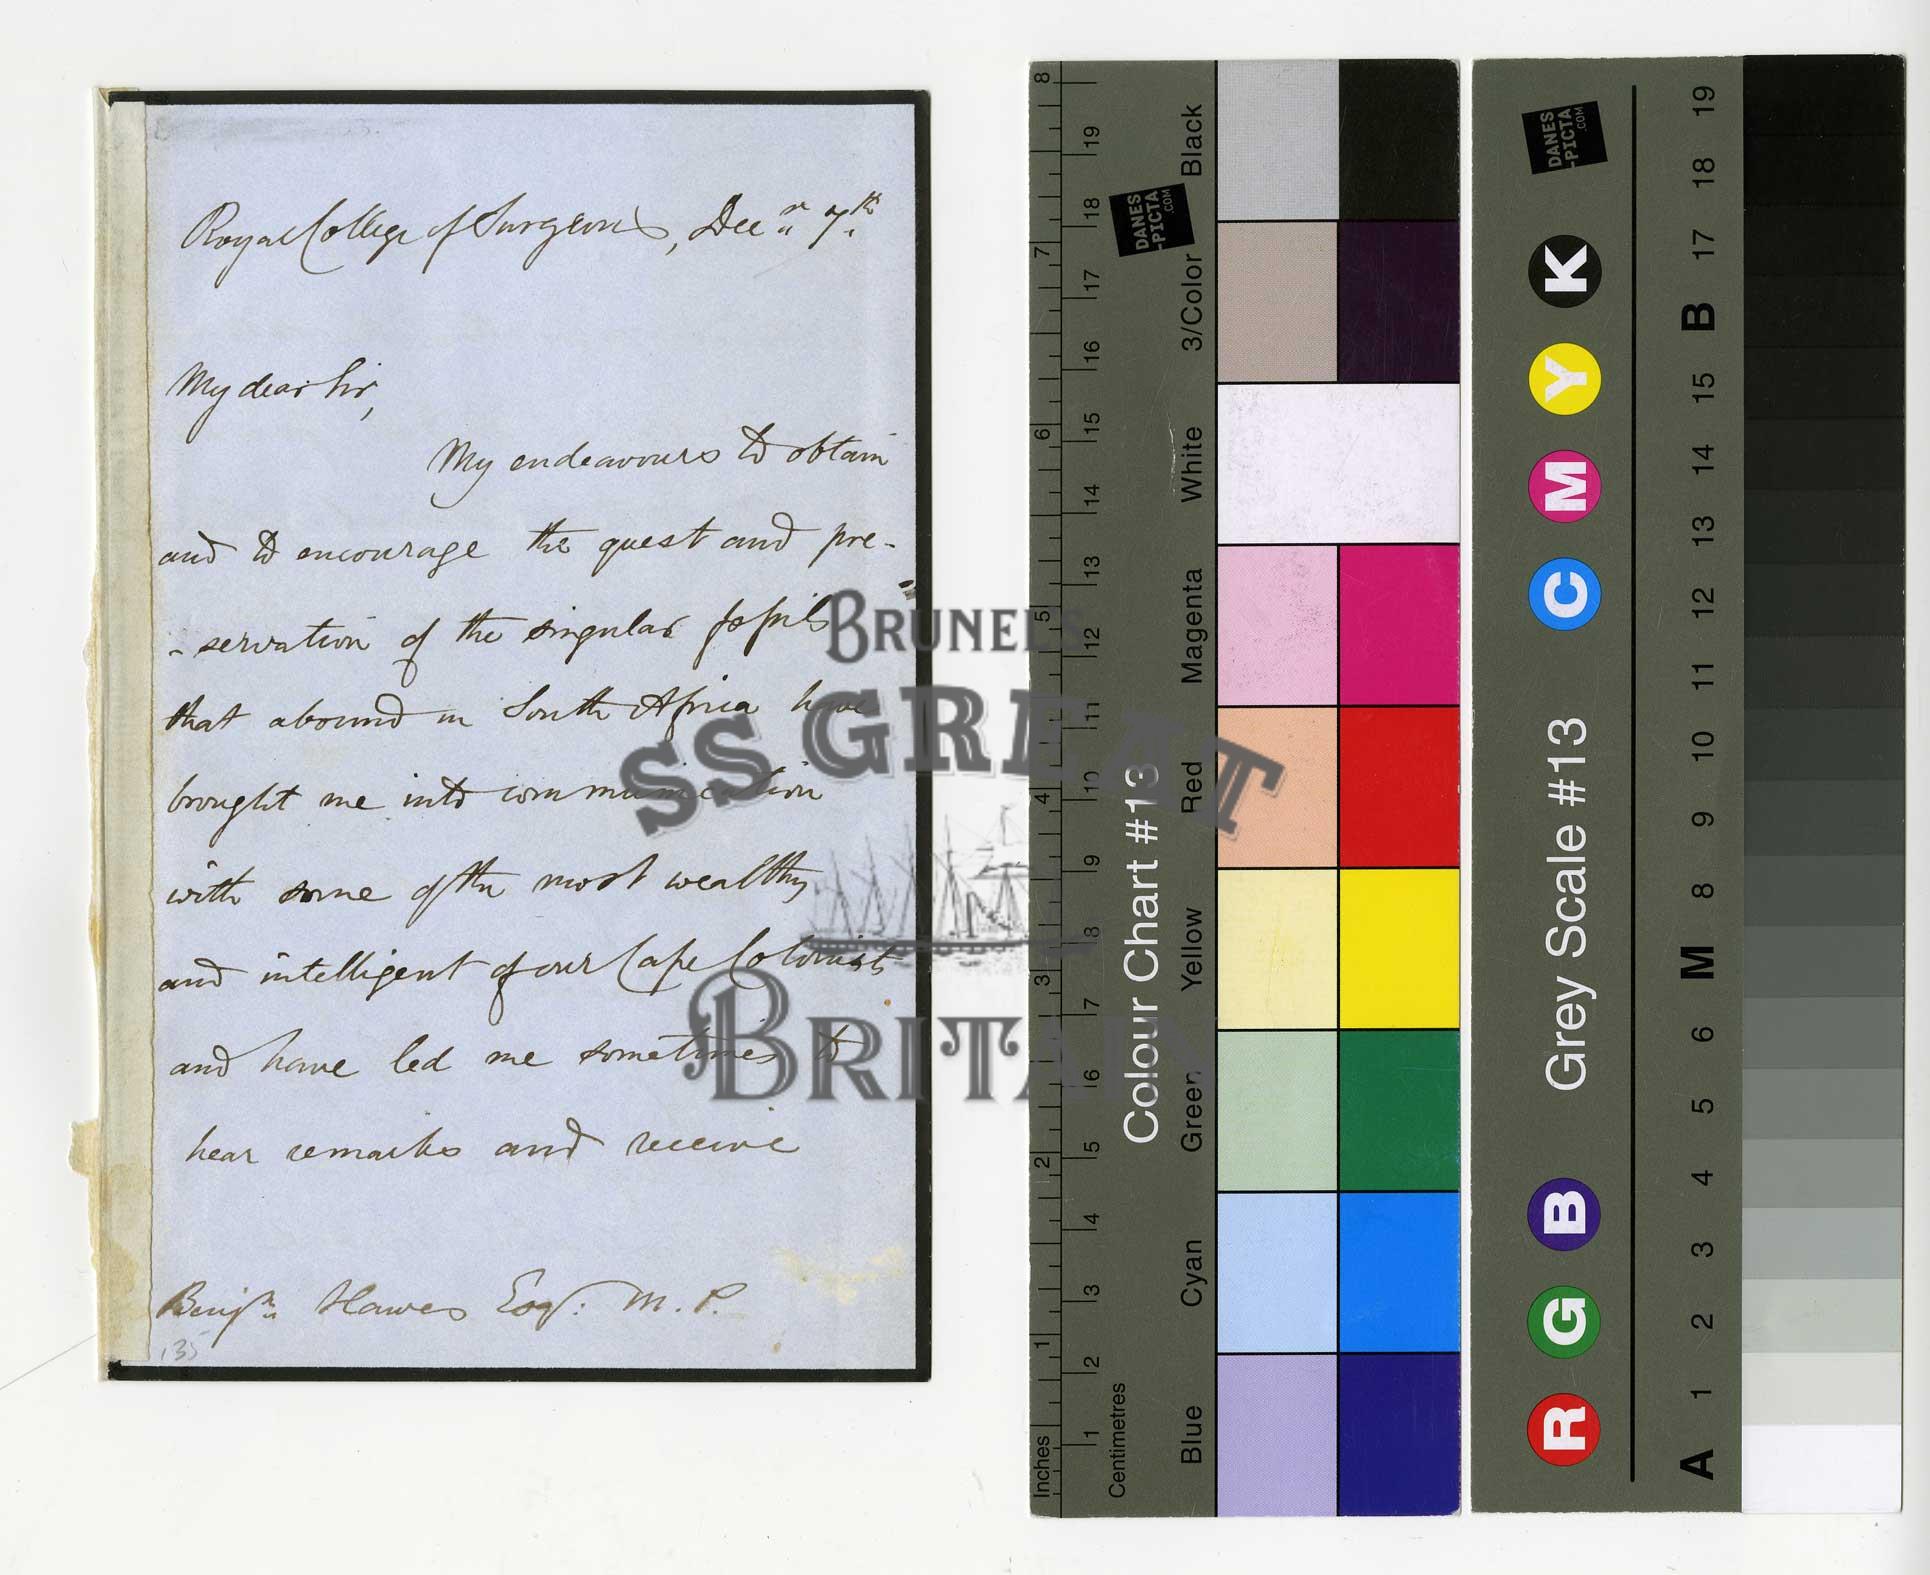 Royal College of Surgeons, Decr. 7th.
My dear Sir,
My endeavours to obtain
and to encourage the quest and pre-
-servation of the singular fossils
that abound in South Africa have
brought me into communication
with some of the most wealthy
and intelligent of our Cape Colonists
and have led me sometimes to
hear remarks and receive
Benjn. Hawes Esqr. M.P.
135
BRUNEL'S
SS GREAT
BRITAIN
Inches
1 2 3 4 5 6 7 8
Centimetres
1 2 3 4 5 6 7 8 9 10 11 12 13 14 15 16 17 18 19
Colour Chart #13
DANES
-PICTA
.COM
Blue
Cyan
Green
Yellow
Red
Magenta
White
3/Color
Black
R G B
Grey Scale #13
C M Y K
DANES
-PICTA
.COM
A 1 2 3 4 5 6 M 8 9 10 11 12 13 14 15 B 17 18 19